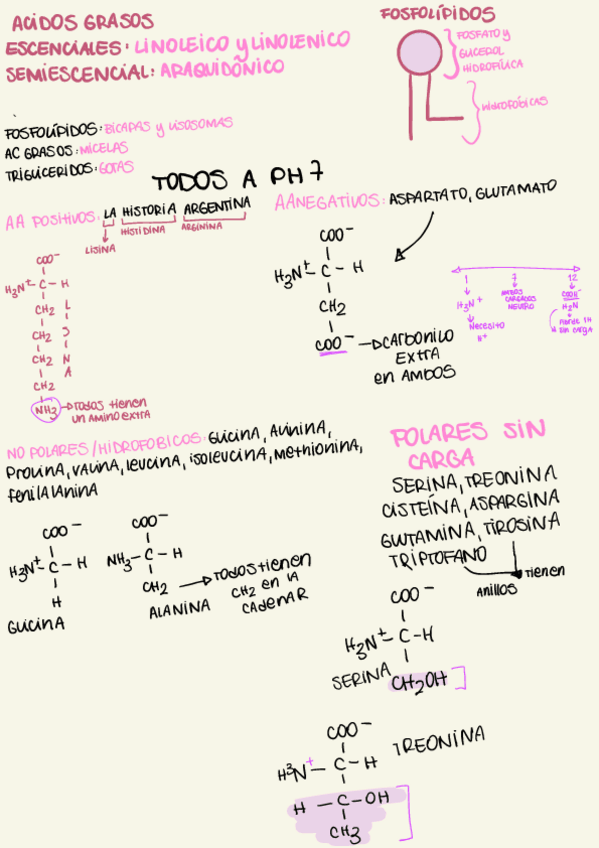 ACIDOS GRASOS
ESCENCIALES: LINOLEICO y LINOLENICO
SEMIESCENCIAL: ARAQUIDÓNICO
FOSFOLÍPIDOS
FOSFATO y
GLICEROL
HIDROFÍLICA
HIDROFÓBICAS
FOSFOLÍPIDOS: BICAPAS y LISOSOMAS
AC GRASOS: MICELAS
TRIGLICERIDOS: GOTAS
TODOS A PH 7
AA POSITIVOS: LA HISTORIA ARGENTINA
HISTIDINA
ARGININA
LISINA
COO⁻
H₃N⁺ - C - H
CH₂
CH₂
CH₂
CH₂
NH₃
LISINA
TODOS TIENEN
UN AMINO EXTRA
AA NEGATIVOS: ASPARTATO, GLUTAMATO
COO⁻
H₃N⁺ - C - H
CH₂
COO⁻
CARBONILO
EXTRA
en AMBOS
1 7 12
H₃N⁺
Necesito
H⁺
AMBOS
CARGADOS
NEUTRO
COOH⁻
H₂N
Pierde 1H
sin carga
NO POLARES / HIDROFOBICOS: GLICINA, ALININA,
PROLINA, VALINA, LEUCINA, ISOLEUCINA, METHIONINA,
FENILALANINA
COO⁻
H₃N⁺ - C - H
H
GLICINA
COO⁻
NH₃ - C - H
CH₂
ALANINA
TODOS TIENEN
CH₂ en LA
CADENA R
POLARES SIN
CARGA
SERINA, TREONINA
CISTEÍNA, ASPARGINA
GLUTAMINA, TIROSINA
TRIPTOFANO
Tienen
Anillos
COO⁻
H₃N⁺ - C - H
SERINA
CH₂OH
COO⁻
TREONINA
H³N⁺ - C - H
H - C - OH
CH₃